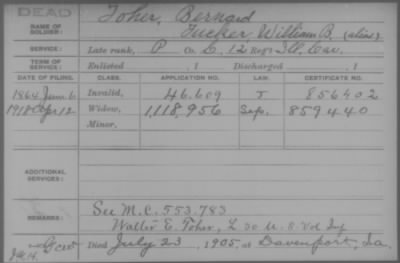 DEAD
NAME OF SOLDIER: Toher, Bernard
Tucker, William B. (alias)
SERVICE: Late rank, P Co. L, 12 Reg't Ill. Cav.
TERM OF SERVICE: Enlisted , 1 Discharged , 1
DATE OF FILING. CLASS. APPLICATION NO. LAW. CERTIFICATE NO.
1864 June 6 Invalid, 46.609 856402
1918 Apr 12 Widow, 1,118,956 Sep. 859440
Minor,
ADDITIONAL SERVICES:
REMARKS: See M.C. 553.783
Walter E. Toher, L 30 U.S. Vol Inf
Died July 23, 1905, at Davenport, Ia.